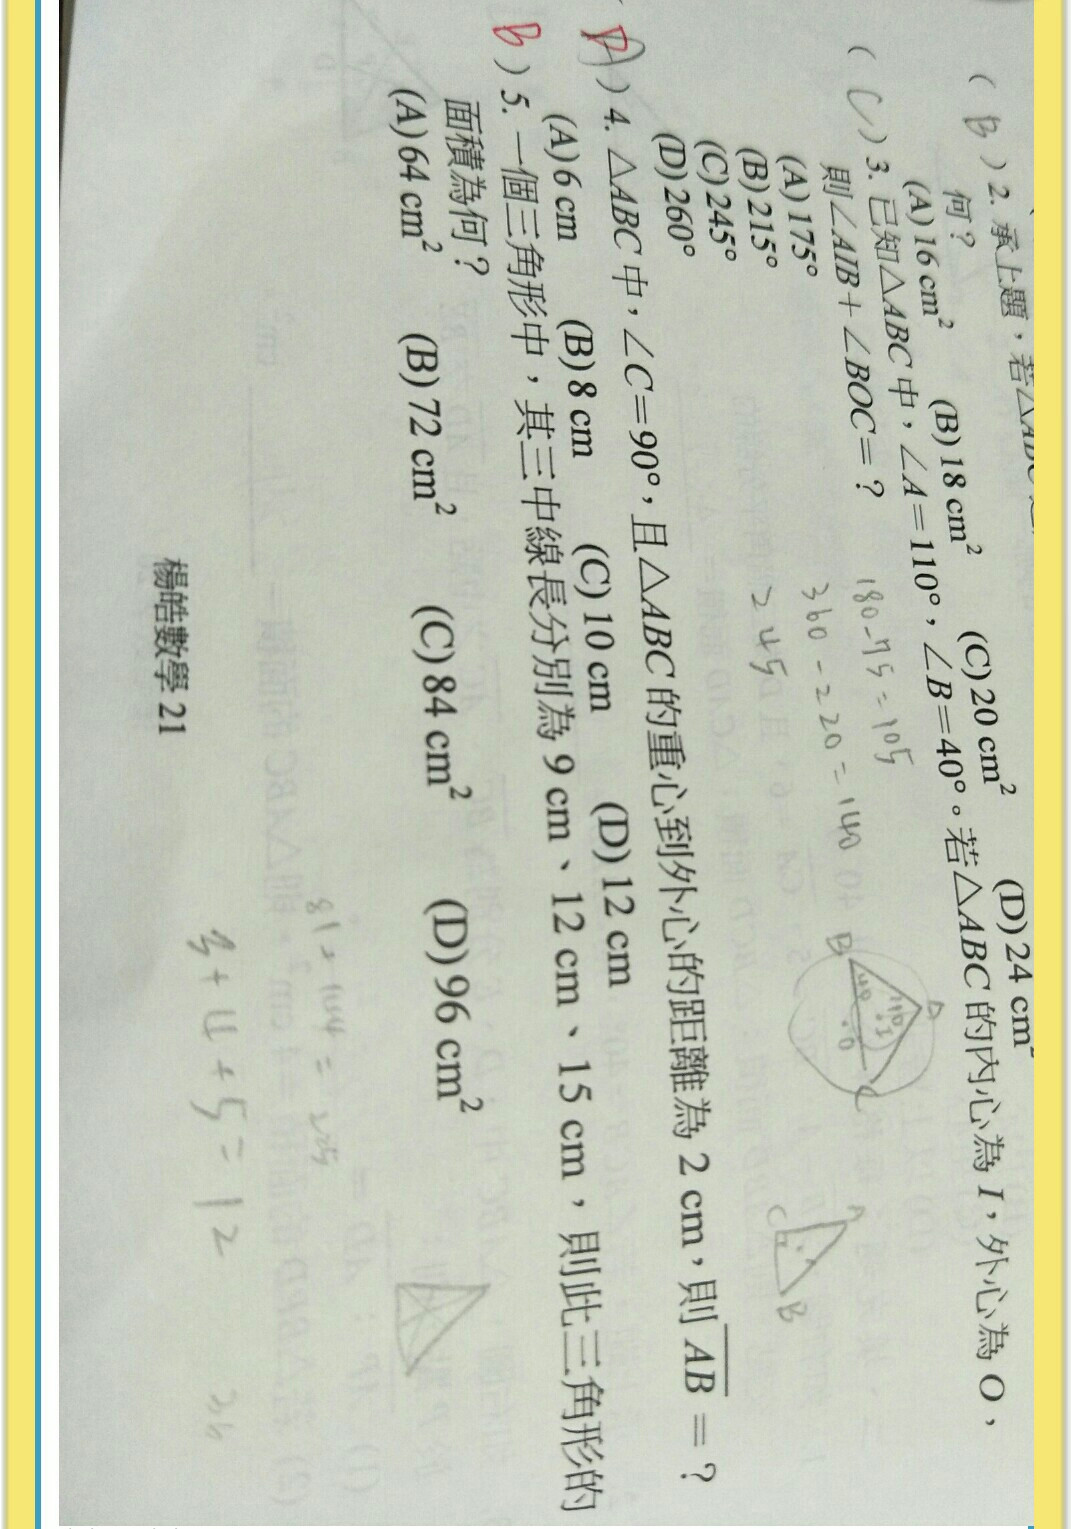 ( B ) 2. 承上題，若△ABC
何？
(A) 16 cm² (B) 18 cm² (C) 20 cm² (D) 24 cm²
( C ) 3. 已知△ABC中，∠A=110°，∠B=40°。若△ABC的內心為I，外心為O，
則∠AIB+∠BOC=？
(A) 175°
(B) 215°
(C) 245°
(D) 260°
180-75=105
360-220=140
245
A
B
C
110
40
I
O
) 4. △ABC中，∠C=90°，且△ABC的重心到外心的距離為2 cm，則AB=？
(A) 6 cm (B) 8 cm (C) 10 cm (D) 12 cm
A
C
B
B ) 5. 一個三角形中，其三中線長分別為9 cm、12 cm、15 cm，則此三角形的
面積為何？
(A) 64 cm² (B) 72 cm² (C) 84 cm² (D) 96 cm²
81+144=225
3+4+5=12
36
楊皓數學 21